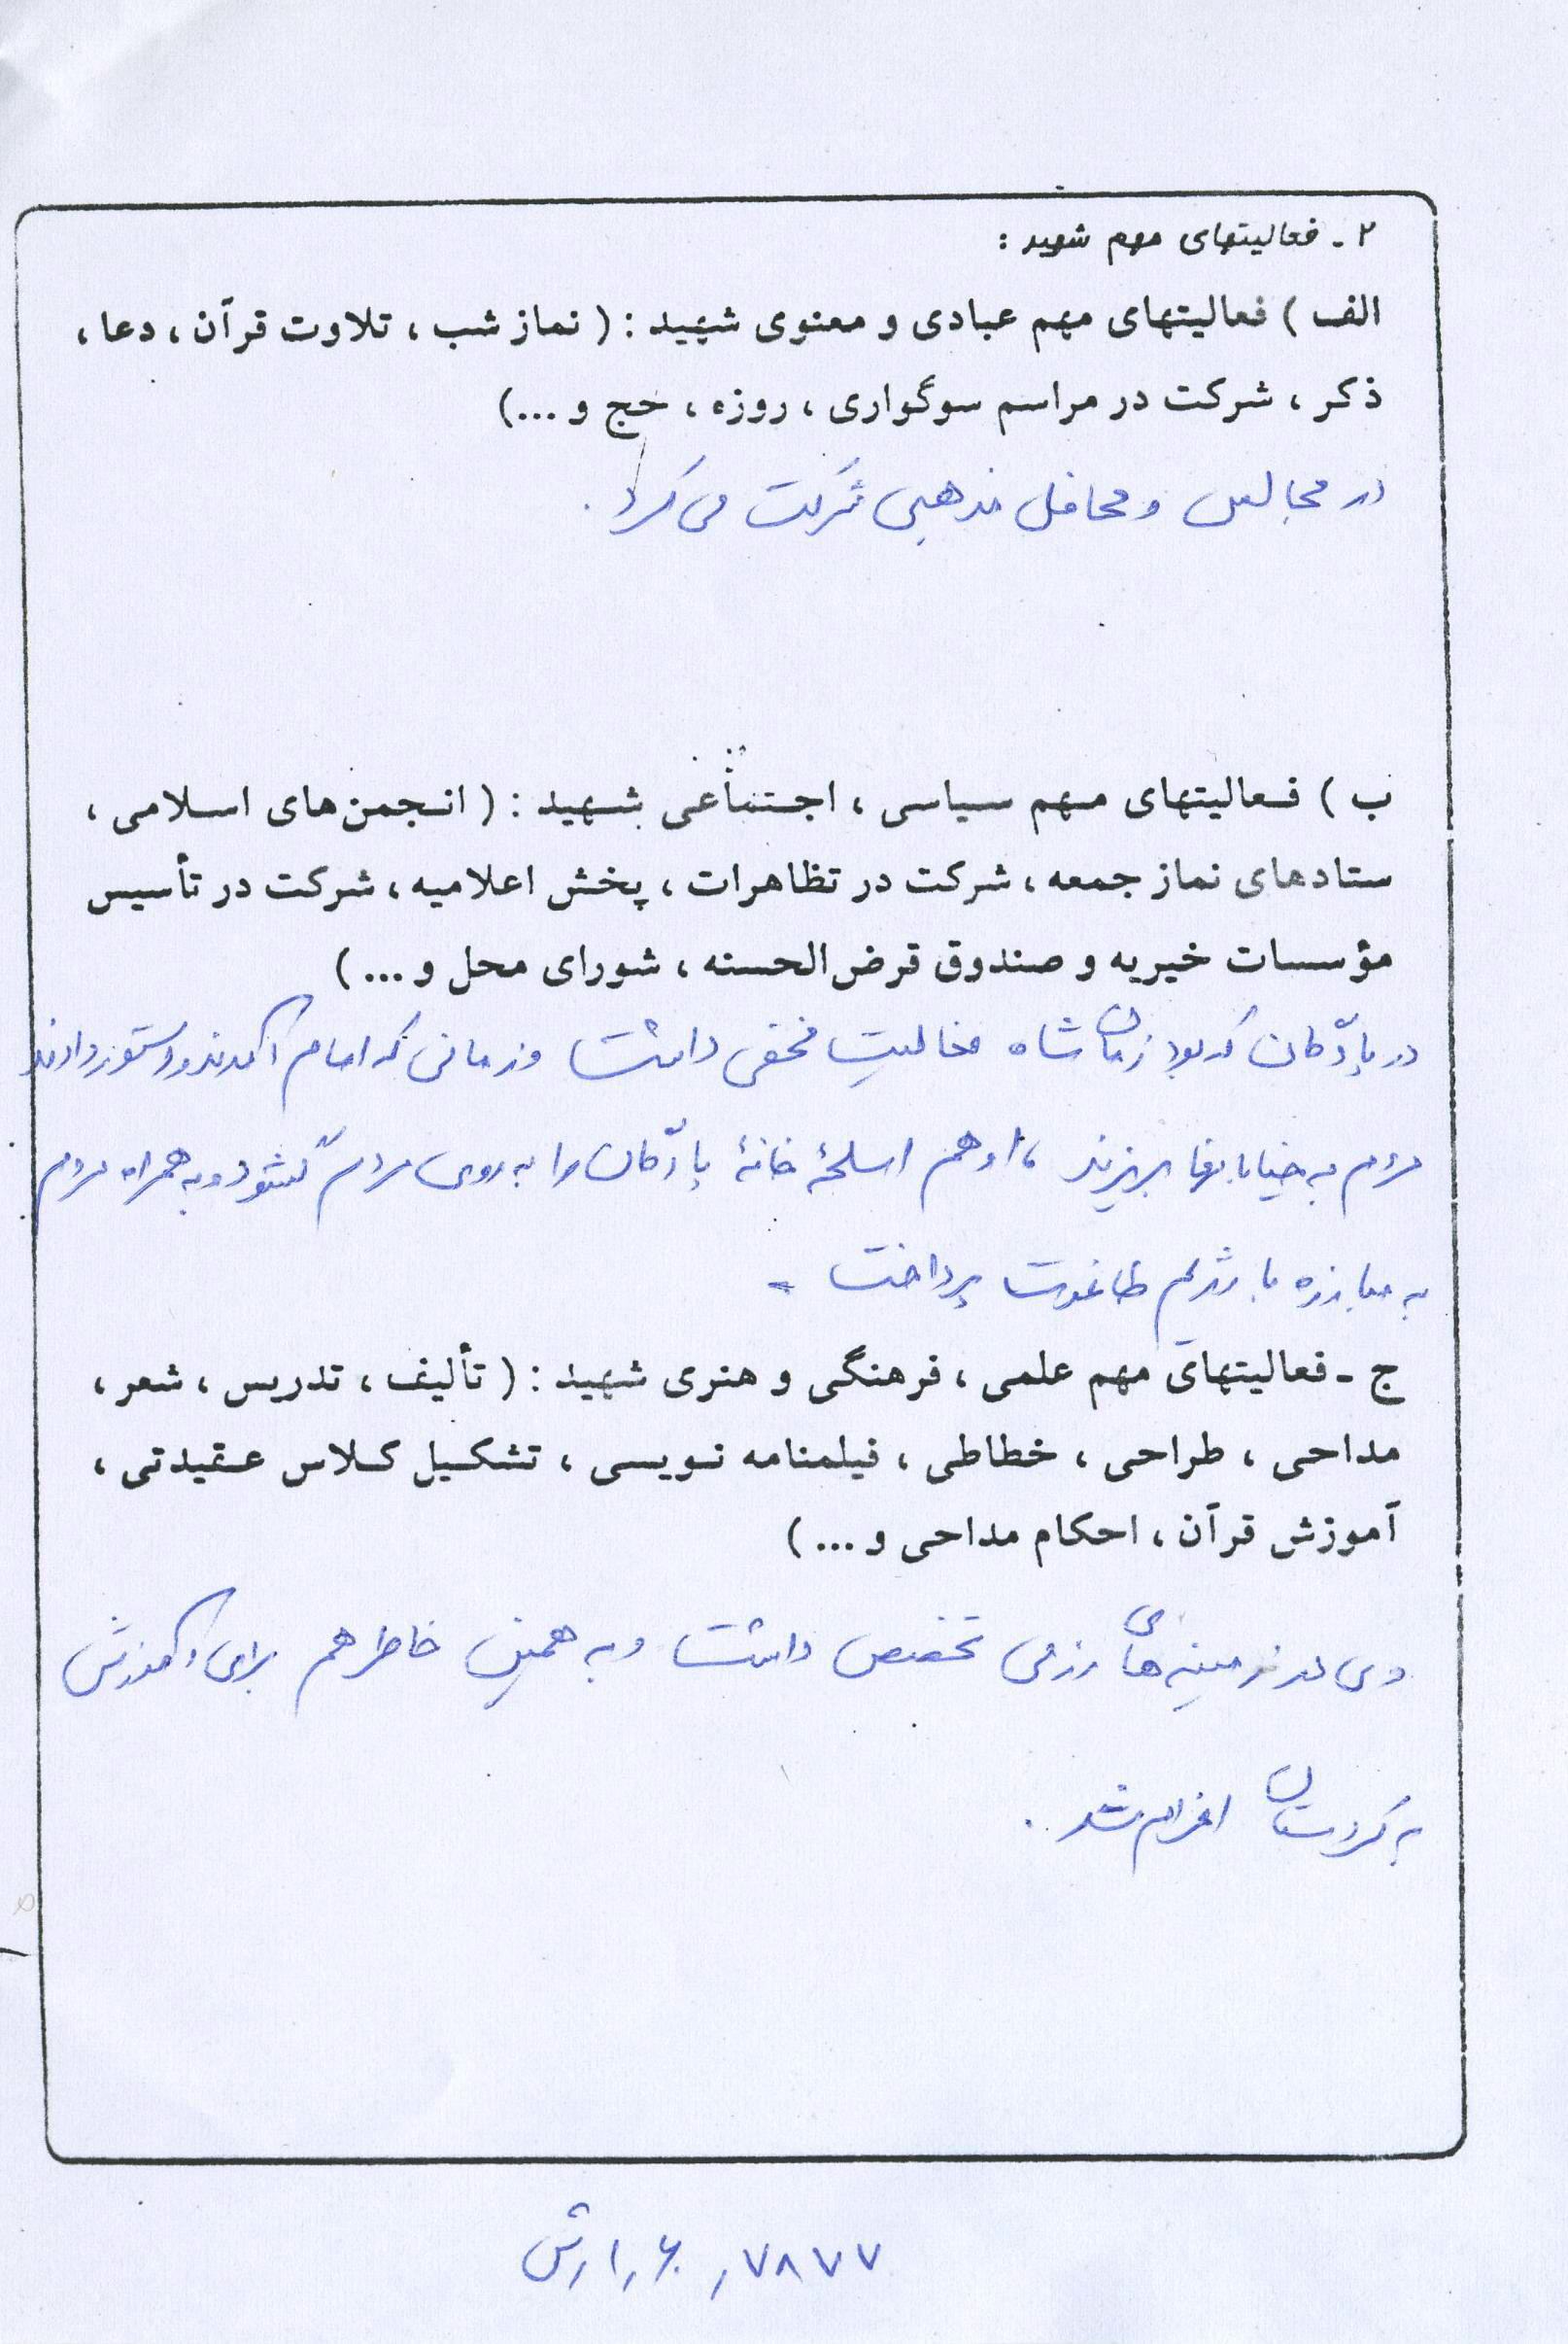 ۲ - فعالیتهای مهم شهید :
الف ) فعالیتهای مهم عبادی و معنوی شهید : ( نماز شب ، تلاوت قرآن ، دعا ،
ذکر ، شرکت در مراسم سوگواری ، روزه ، حج و ...)
در مجالس و محافل مذهبی شرکت می کرد .
ب ) فعالیتهای مهم سیاسی ، اجتماعی شهید : ( انجمن‌های اسلامی ،
ستادهای نماز جمعه ، شرکت در تظاهرات ، پخش اعلامیه ، شرکت در تأسیس
مؤسسات خیریه و صندوق قرض‌الحسنه ، شورای محل و ... )
در پادگان که بود زمان شاه فعالیت مخفی داشت و زمانی که امام آمدند و دستور دادند
مردم به خیابانها بریزند ، او هم اسلحهٔ خانهٔ پادگان را به روی مردم گشود و به همراه مردم
به مبارزه با رژیم طاغوت پرداخت .
ج - فعالیتهای مهم علمی ، فرهنگی و هنری شهید : ( تألیف ، تدریس ، شعر ،
مداحی ، طراحی ، خطاطی ، فیلمنامه نویسی ، تشکیل کلاس عقیدتی ،
آموزش قرآن ، احکام مداحی و ... )
وی در زمینه های رزمی تخصص داشت و به همین خاطر هم برای آموزش
به کردستان اعزام شد .
۷۸۷۷ ر